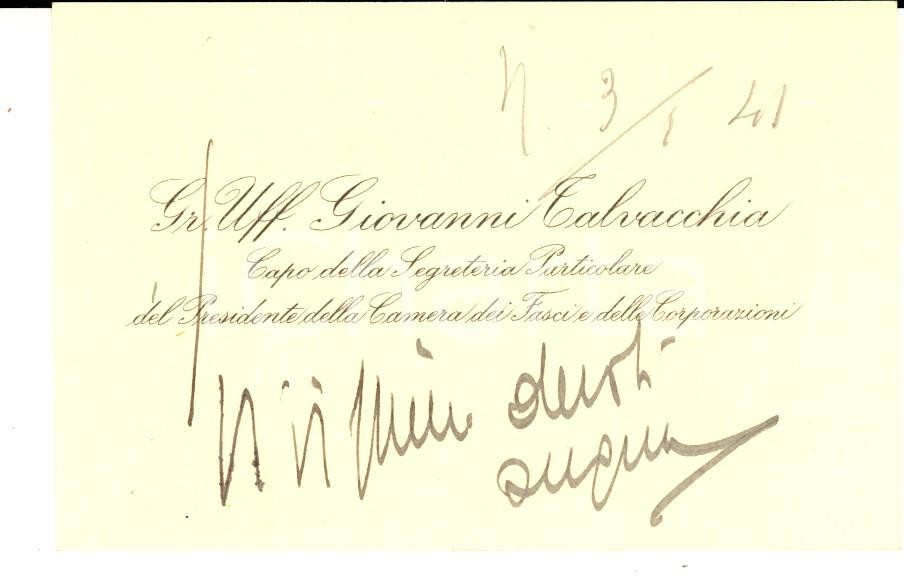 3/5 41
Gr. Uff. Giovanni Talvacchia
Capo della Segreteria Particolare
del Presidente della Camera dei Fasci e delle Corporazioni
Vivissimi devoti
auguri